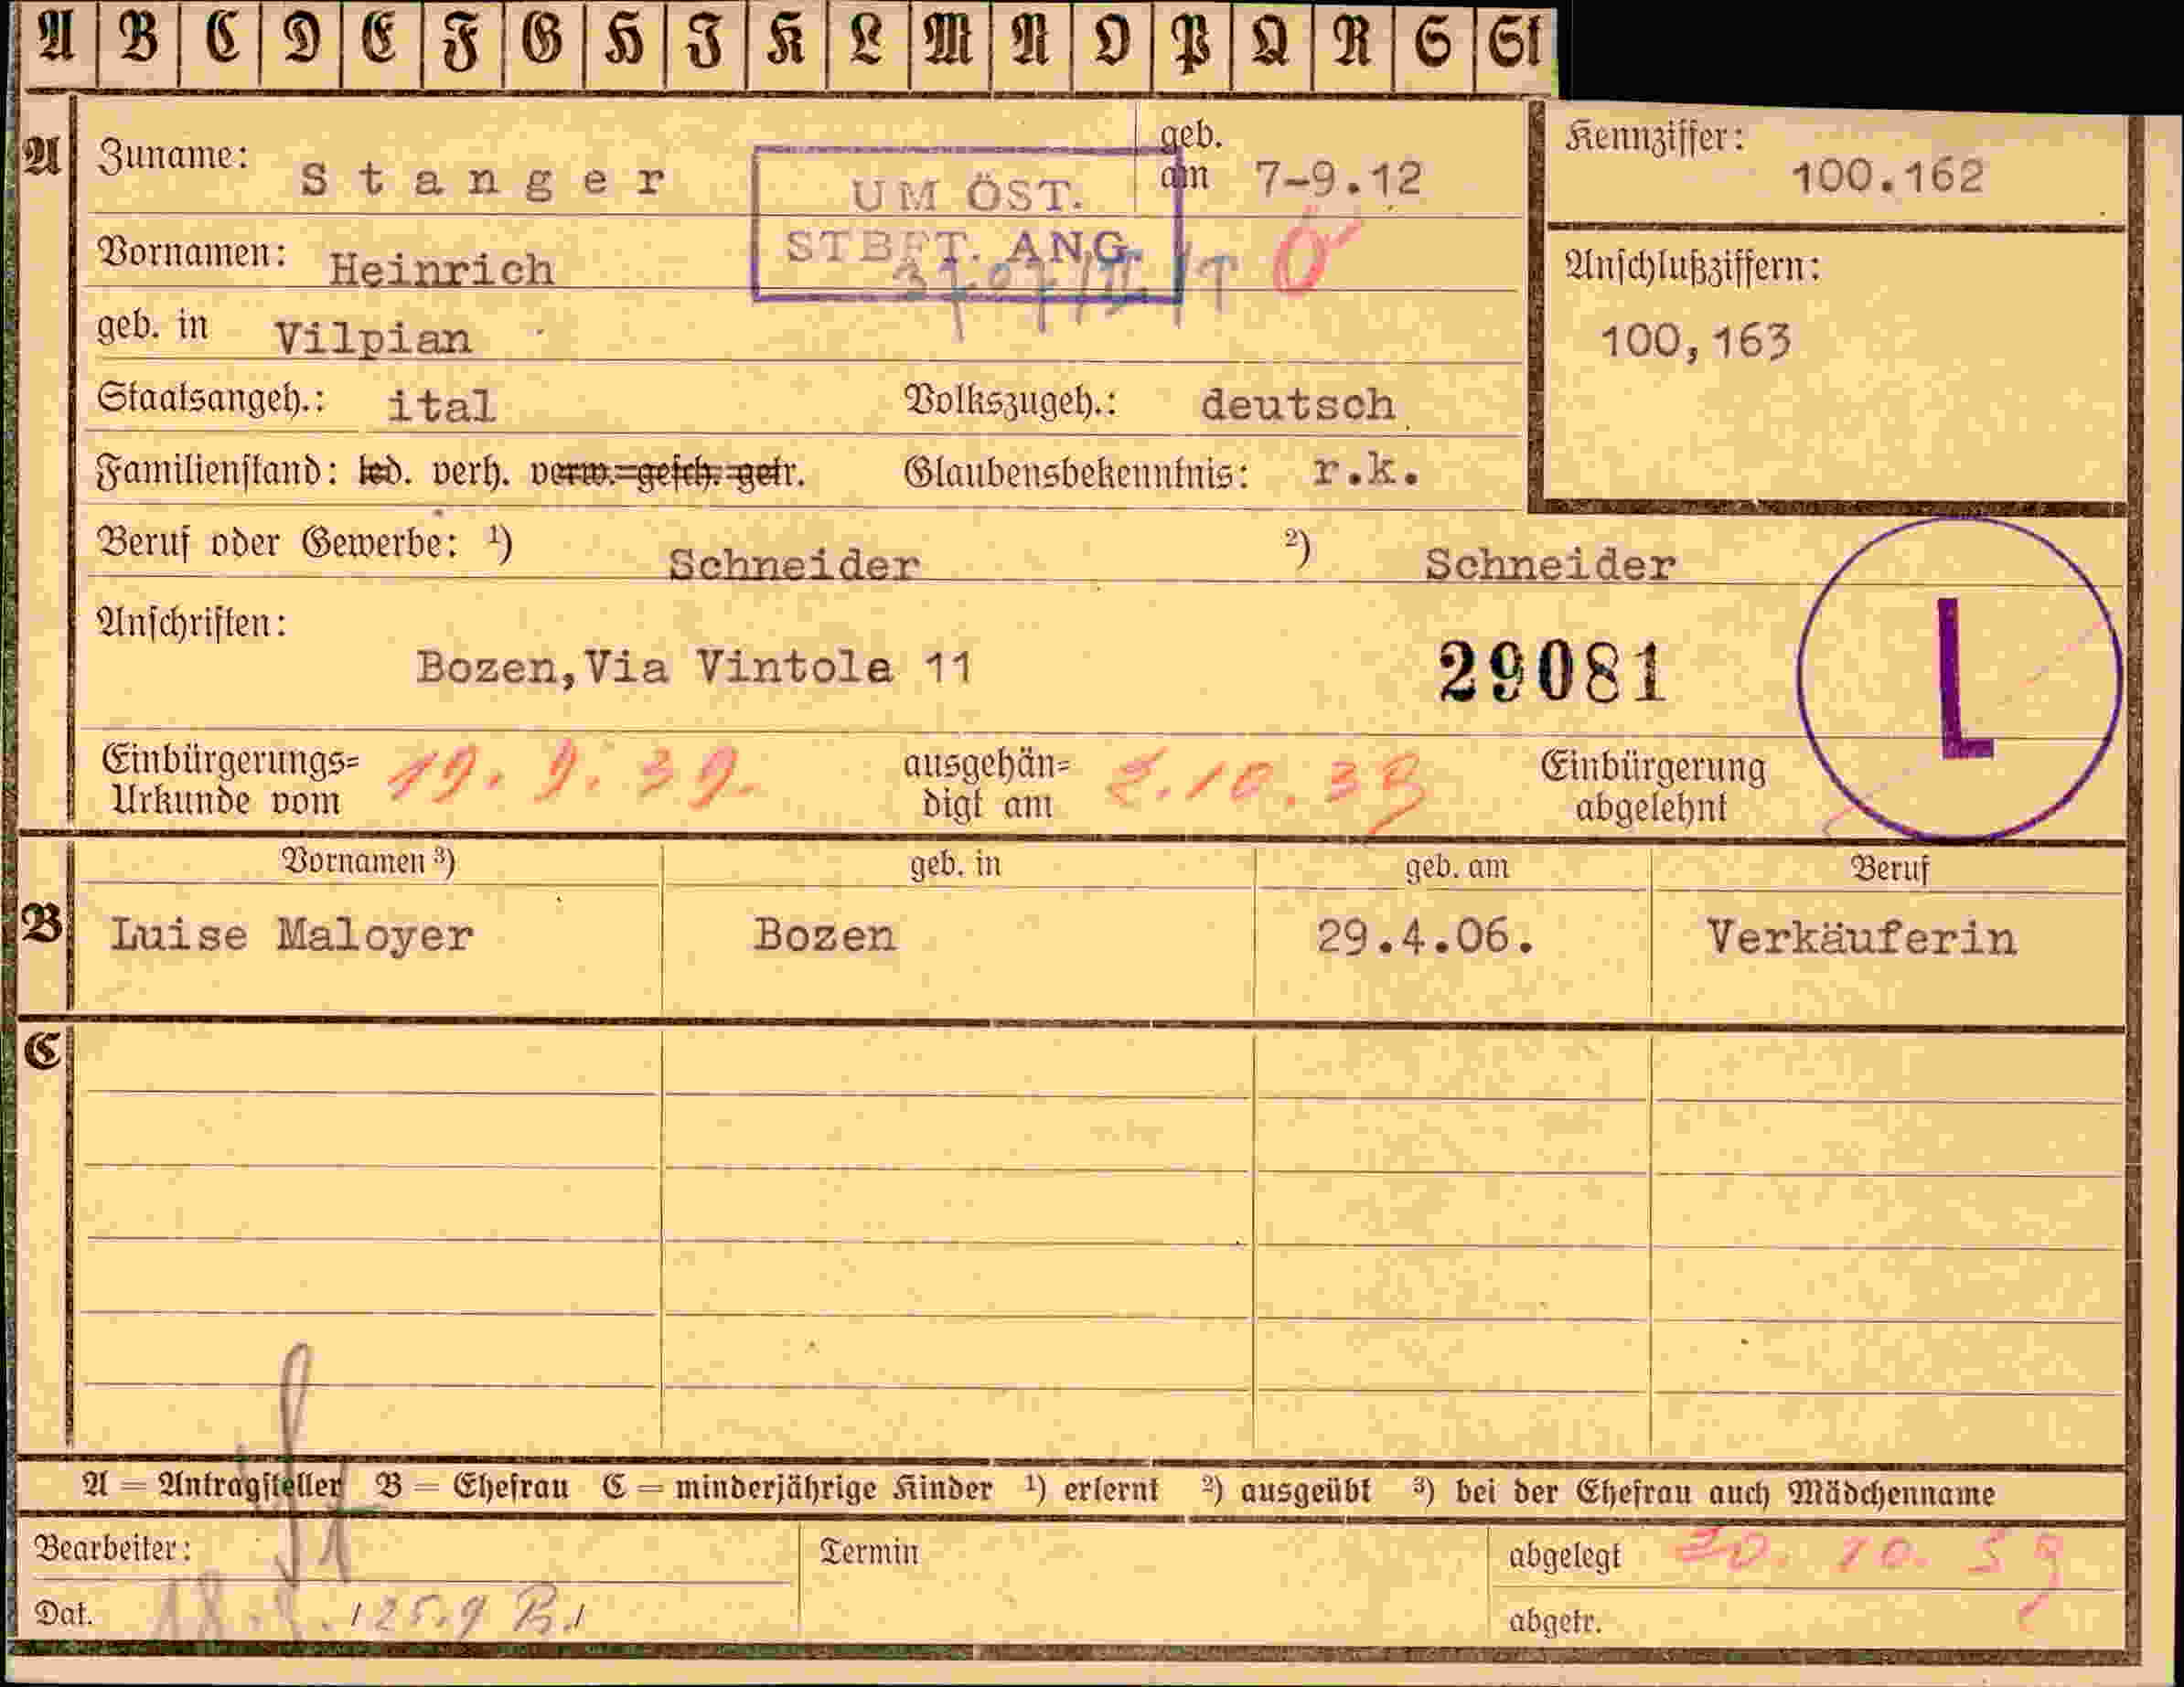 A B C D E F G H I K L M N O P Q R S St
A Zuname: Stanger geb. am 7-9.12
Kennziffer: 100.162
UM ÖST. STBFT. ANG.
Vornamen: Heinrich
Anschlußziffern:
100,163
geb. in Vilpian
Staatsangeh.: ital Volkszugeh.: deutsch
Familienstand: led. verh. verw. gesch. getr. Glaubensbekenntnis: r.k.
Beruf oder Gewerbe: 1) Schneider 2) Schneider
Anschriften:
Bozen, Via Vintole 11 29081 L
Einbürgerungs=Urkunde vom 19. 9. 39. ausgehän=digt am 2.10.39 Einbürgerung abgelehnt
Vornamen 3) geb. in geb. am Beruf
B Luise Maloyer Bozen 29.4.06. Verkäuferin
C
A = Antragsteller B = Ehefrau C = minderjährige Kinder 1) erlernt 2) ausgeübt 3) bei der Ehefrau auch Mädchenname
Bearbeiter: Termin abgelegt 30. 10. 39
Dat. abgetr.